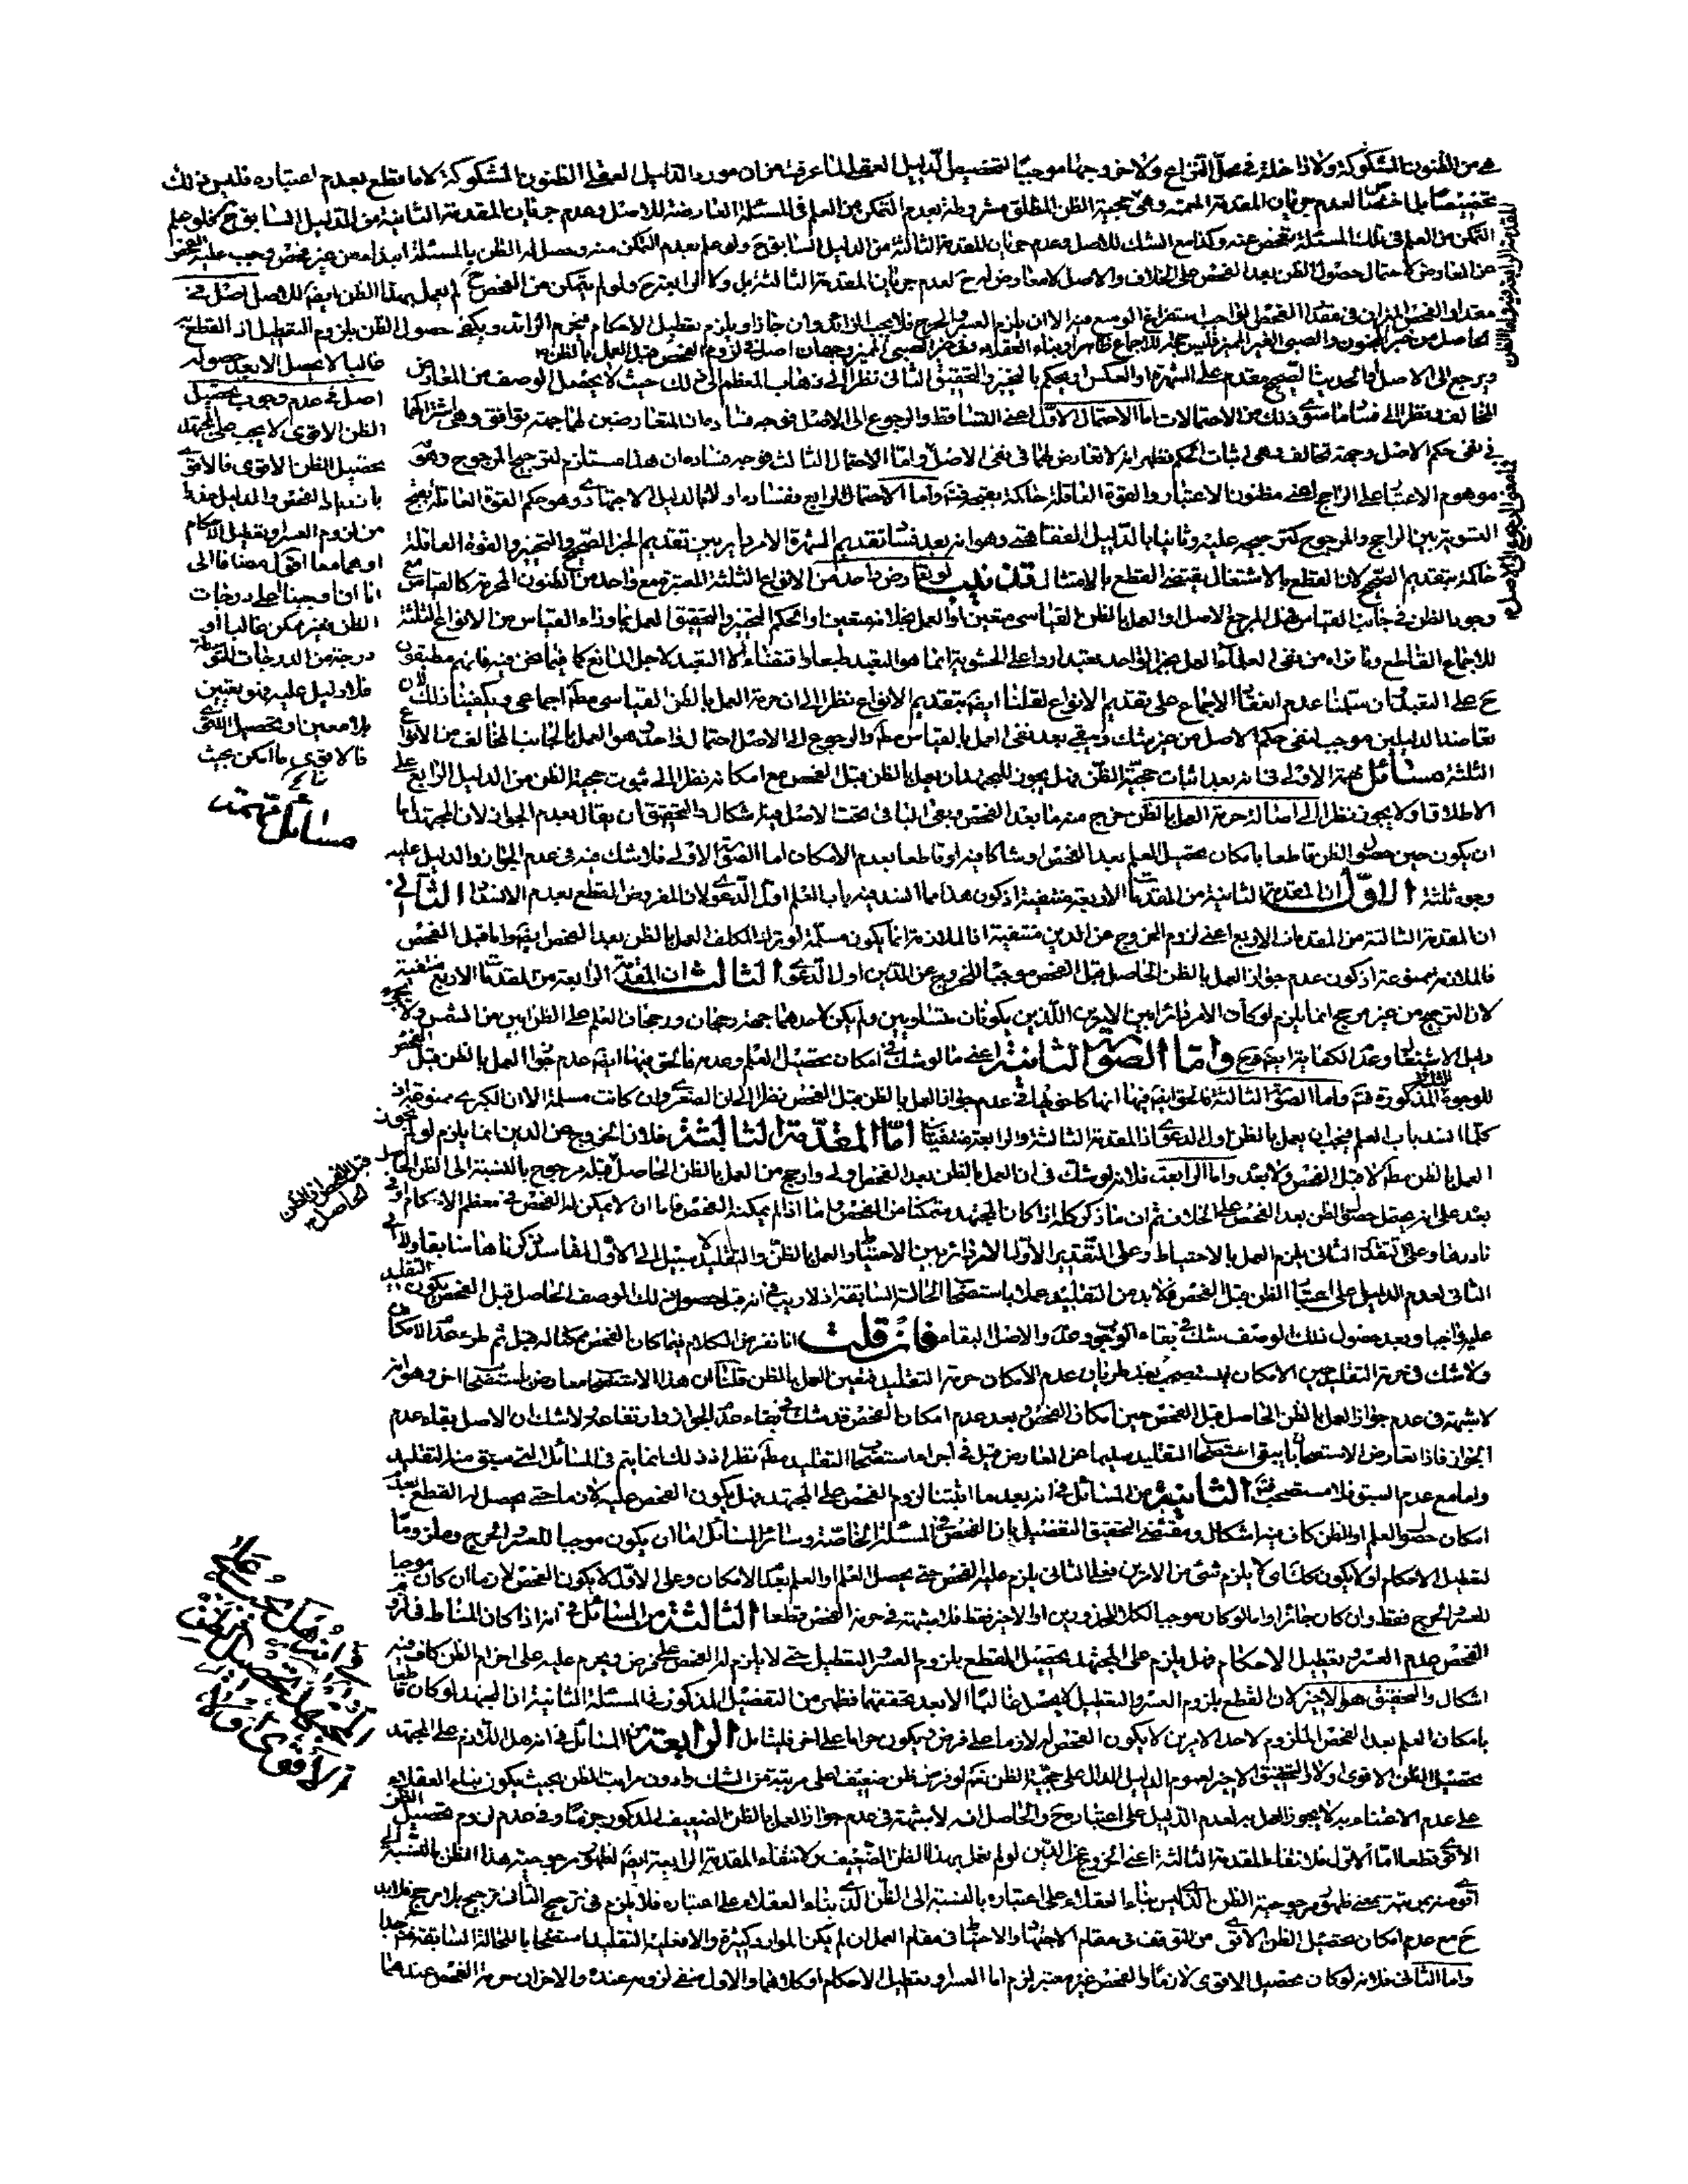 هي من الظنون المشكوكة ولا داخلة في محل النزاع ولا خروجها موجبا لتخصيص الدليل العقلي لما عرفت من ان مورد الدليل العقلي الظنون المشكوكة لا ما قطع بعدم اعتباره فليس ذلك
تخصيصا بل اختصاصا لعدم جريان المقدمة المعممة وهي حجية الظن المطلق مشروطة بعدم التمكن من العلم في المسئلة المعارضة للاصل وعدم جريان المقدمة الثانية من الدليل السابق ح فلو علم
التمكن من العلم في تلك المسئلة بتفحص عنه وكذا مع الشك للاصل وعدم جريان المقدمة الثالثة من الدليل السابق ح ولو علم بعدم التمكن منه وحصل له الظن بالمسئلة ابتداء من غير فحص وجب عليه الفحص
عن المعارض لاحتمال حصول الظن بعد الفحص على الخلاف والاصل لا معارض له ح لعدم جريان المقدمة الثالثة بل وكا الرابعة ح ولو لم يتمكن من الفحص ح لم يعمل بهذا الظن ايضا للاصل اصل في
مقدار الفحص الميزان في مقدار الفحص الواجب استفراغ الوسع فيه الا ان يلزم العسر والحرج فلا يجب الزائد وان جاز او يلزم تعطيل الاحكام فيحرم الزائد ويكفي حصول الظن بلزوم التعطيل اذ القطع به
غالبا لا يحصل الا بعد حصوله
اصل في عدم وجوب تحصيل
الظن الاقوى لا يجب على المجتهد
تحصيل الظن الاقوى فالاقوى
من لزوم العسر وتعطيل الاحكام
او هما معا اقول مضافا الى
انا ان اوجبنا اعلى درجات
الظن فغير ممكن غالبا او
درجة من الدرجات المتوسطة
فلا دليل عليه فهو تعيين
بلا معين او تحصيل الاقوى
فالاقوى ما امكن بحيث
مسائل مهمة
ويرجع الى الاصل او الحديث الصحيح مقدم على الشهرة او العكس او يحكم بالتخيير والتحقيق الثاني نظرا الى ذهاب المعظم الى ذلك حيث لا يحصل الوصف من المعارض
المخالف ونظرا الى فساد ما سوى ذلك من الاحتمالات اما الاحتمال الاول اعني التساقط والرجوع الى الاصل فوجه فساده ان المتعارضين لهما جهة توافق وهي اشتراكهما
في نفي حكم الاصل وجهة تخالف وهي اثبات الحكم فظهر انه لا تعارض لهما في نفي الاصل واما الاحتمال الثالث فوجه فساده ان هذا مستلزم لترجيح المرجوح وهو
موهوم الاعتبار على الراجح اعني مظنون الاعتبار والقوة العاقلة حاكمة بقبحه فتم واما الاحتمال الرابع ففساده اولا بالدليل الاجتهادي وهو حكم القوة العاقلة بقبح
التسوية بين الراجح والمرجوح كترجيحه عليه وثانيا بالدليل الفقاهتي وهو انه بعد فساد تقديم الشهرة الامر دائر بين تقديم الخبر الصحيح والتخيير والقوة العاقلة
حاكمة بتقديم الصحيح لان القطع بالاشتغال يقتضي القطع بالامتثال تذنيب لو تعارض واحد من الانواع الثلثة المعتبرة مع واحد من الظنون المحرمة كالقياس مع
وجود الظن في جانب القياس فهل المرجع الاصل او العمل بالظن القياسي متعين او العمل بخلافه متعين او الحكم التخيير والتحقيق العمل بما وراء القياس من الانواع الثلثة
ح على التقييد ان سلمنا عدم انعقاد الاجماع على تقديم الانواع لقلنا ايضا بتقديم الانواع نظرا الى ان حرمة العمل بالظن القياسي مطلقا اجماعي ويكفينا ذلك لان
تعاضد الدليلين موجب لنفي حكم الاصل من غير شك وبقي بعد نفي العمل بالقياس مطلقا والرجوع الى الاصل احتمال واحد وهو العمل بالجانب المخالف من الانواع
الثلثة مسائل مهمة الاولى في انه بعد اثبات حجية الظن فهل يجوز للمجتهد ان يعمل بالظن قبل الفحص مع امكانه نظرا الى ثبوت حجية الظن من الدليل الرابع على
الاطلاق او لا يجوز نظرا الى اصالة حرمة العمل بالظن خرج منه ما بعد الفحص وبقي الباقي تحت الاصل فيه اشكال والتحقيق ان يقال بعدم الجواز لان المجتهد اما
ان يكون حين حصول الظن قاطعا بامكان تحصيل العلم بعد الفحص او شاكا فيه او قاطعا بعدم الامكان اما الصورة الاولى فلا شك فيه في عدم الجواز والدليل عليه
وجوه ثلثة الاول ان المقدمة الثانية من المقدمات الاربعة منتفية اذ كون هذا مما انسد فيه باب العلم اول الدعوى لان المفروض القطع بعدم الانسداد الثاني
ان المقدمة الثالثة من المقدمات الاربع اعني لزوم الخروج عن الدين منتفية اذ الملازمة انما يكون مسلمة لو ترك المكلف العمل بالظن بعد الفحص ايضا واما قبل الفحص
فالملازمة ممنوعة اذ كون عدم جواز العمل بالظن الحاصل قبل الفحص موجبا للخروج عن الدين اول الدعوى الثالث ان المقدمة الرابعة من المقدمات الاربع منتفية
لان الترجيح من غير مرجح انما يلزم لو كان الامر دائرا بين الامرين اللذين يكونان متساويين ولم يكن لاحدهما جهة رجحان ورجحان العلم على الظن ابين من الشمس
دليل الاشتغال وعدم الكفاية ايضا ح واما الصورة الثانية اعني ما لو شك في امكان تحصيل العلم وعدمه فالحق فيها ايضا عدم جواز العمل بالظن قبل الفحص
للوجوه الثلثة المذكورة فتم واما الصورة الثالثة فالحق ايضا فيها انها كاختيها في عدم جواز العمل بالظن قبل الفحص نظرا الى ان الصغرى وان كانت مسلمة الا ان الكبرى ممنوعة اذ
كلما انسد باب العلم فيجب ان يعمل بالظن اول الدعوى اذ المقدمة الثالثة والرابعة منتفيتان اما المقدمة الثالثة فلان الخروج عن الدين انما يلزم لو لم يجوز
العمل بالظن مطلقا لا قبل الفحص ولا بعده واما الرابعة فلانه لو شك في ان العمل بالظن بعد الفحص اولى وارجح من العمل بالظن الحاصل قبله مرجوح بالنسبة الى الظن الحاصل
قبل الفحص اذ الظن الحاصل
بعده على انه يحتمل حصول الظن بعد الفحص على الخلاف ثم ان ما ذكر كله اذا كان المجتهد متمكنا من الفحص واما اذا لم يمكنه الفحص فاما ان لا يمكن له الفحص في معظم الاحكام او في
نادرها وعلى التقدير الثاني يلزم العمل بالاحتياط وعلى التقدير الاول الامر دائر بين الاحتياط والعمل بالظن والتقليد لا سبيل الى الاول لمفاسد ذكرناها سابقا ولا الى
الثاني لعدم الدليل على اعتبار الظن قبل الفحص فلا بد من التقليد عملا باستصحاب الحالة السابقة اذ لا ريب في انه قبل حصول ذلك الوصف الحاصل قبل الفحص يكون التقليد
عليه واجبا وبعد حصول ذلك الوصف شك في بقاء الوجوب وعدمه والاصل البقاء فان قلت انا نفرض الكلام فيما كان الفحص ممكنا له قبل ثم طرء عدم الامكان
ولا شك في حرمة التقليد حين الامكان يستصحب بعد طريان عدم الامكان حرمة التقليد فتعين العمل بالظن قلنا ان هذا الاستصحاب معارض باستصحاب اخر وهو انه
لا شبهة في عدم جواز العمل بالظن الحاصل قبل الفحص حين امكان الفحص وبعد عدم امكان الفحص قد شك في بقاء عدم الجواز وارتفاعه ولا شك ان الاصل بقاء عدم
الجواز فاذا تعارض الاستصحابان يبقى استصحاب التقليد سليما عن المعارض قيل في اجراء استصحاب التقليد مطلقا نظر اذ ذلك انما يتم في المسائل التي سبق منه التقليد
واما مع عدم السبق فلا مستصحب فتم الثانية من المسائل في انه بعد ما اثبتنا لزوم الفحص على المجتهد فهل يكون الفحص عليه لازما حتى يحصل له القطع بعدم
امكان حصول العلم او الظن كاف فيه اشكال ومقتضى التحقيق التفصيل بان الفحص في المسئلة الخاصة وسائر المسائل اما ان يكون موجبا للعسر والحرج وملزوما
لتعطيل الاحكام او لا يكون كك اي لا يلزم شئ من الامرين فعلى الثاني يلزم عليه الفحص حتى يحصل العلم او العلم بعدم الامكان وعلى الاول لا يكون الفحص لازما ان كان موجبا
للعسر والحرج فقط وان كان جائزا واما لو كان موجبا لكلا المحذورين او الاخير فقط فلا شبهة في حرمة الفحص قطعا الثالثة من المسائل في انه اذا كان المناط في لزوم
الفحص عدم العسر وتعطيل الاحكام فهل يلزم على المجتهد تحصيل القطع بلزوم العسر والتعطيل حتى لا يلزم له الفحص على فرض ويحرم عليه على اخر ام الظن كاف فيه
اشكال والتحقيق هو الاخير لان القطع بلزوم العسر والتعطيل لا يحصل غالبا الا بعد تحققهما فظهر من التفصيل المذكور في المسئلة الثانية ان المجتهد لو كان قاطعا
بامكان العلم بعد الفحص الملزوم لاحد الامرين لا يكون الفحص له لازما على فرض ويكون حراما على اخر فليتامل الرابعة من المسائل في انه هل اللازم على المجتهد
تحصيل الظن الاقوى او لا والتحقيق الاخير لعموم الدليل الدال على حجية الظن نعم لو فرض ظن ضعيف اعلى مرتبة من الشك وادون مراتب الظن بحيث يكون بناء العقلاء
على عدم الاعتناء به لا يجوز العمل به لعدم الدليل على اعتباره ح والحاصل انه لا شبهة في عدم جواز العمل بالظن الضعيف المذكور جزما وفي عدم لزوم تحصيل الظن
الاقوى قطعا اما الاول فلانتفاء المقدمة الثالثة اعني الخروج عن الدين لو لم نعمل بهذا الظن الضعيف ولانتفاء المقدمة الرابعة ايضا لظهور مرجوحية هذا الظن بالنسبة الى
ح مع عدم امكان تحصيل الظن الاقوى من التوقف في مقام الاجتهاد والاحتياط في مقام العمل ان لم يكن الموارد كثيرة والا فعليه التقليد استصحابا للحالة السابقة
واما الثاني فلانه لو كان تحصيل الاقوى لازما والفحص غير معتبر لزم اما العسر او تعطيل الاحكام او كلاهما والاول منفي لزومه عنده والاخران حرمة الفحص عندهما